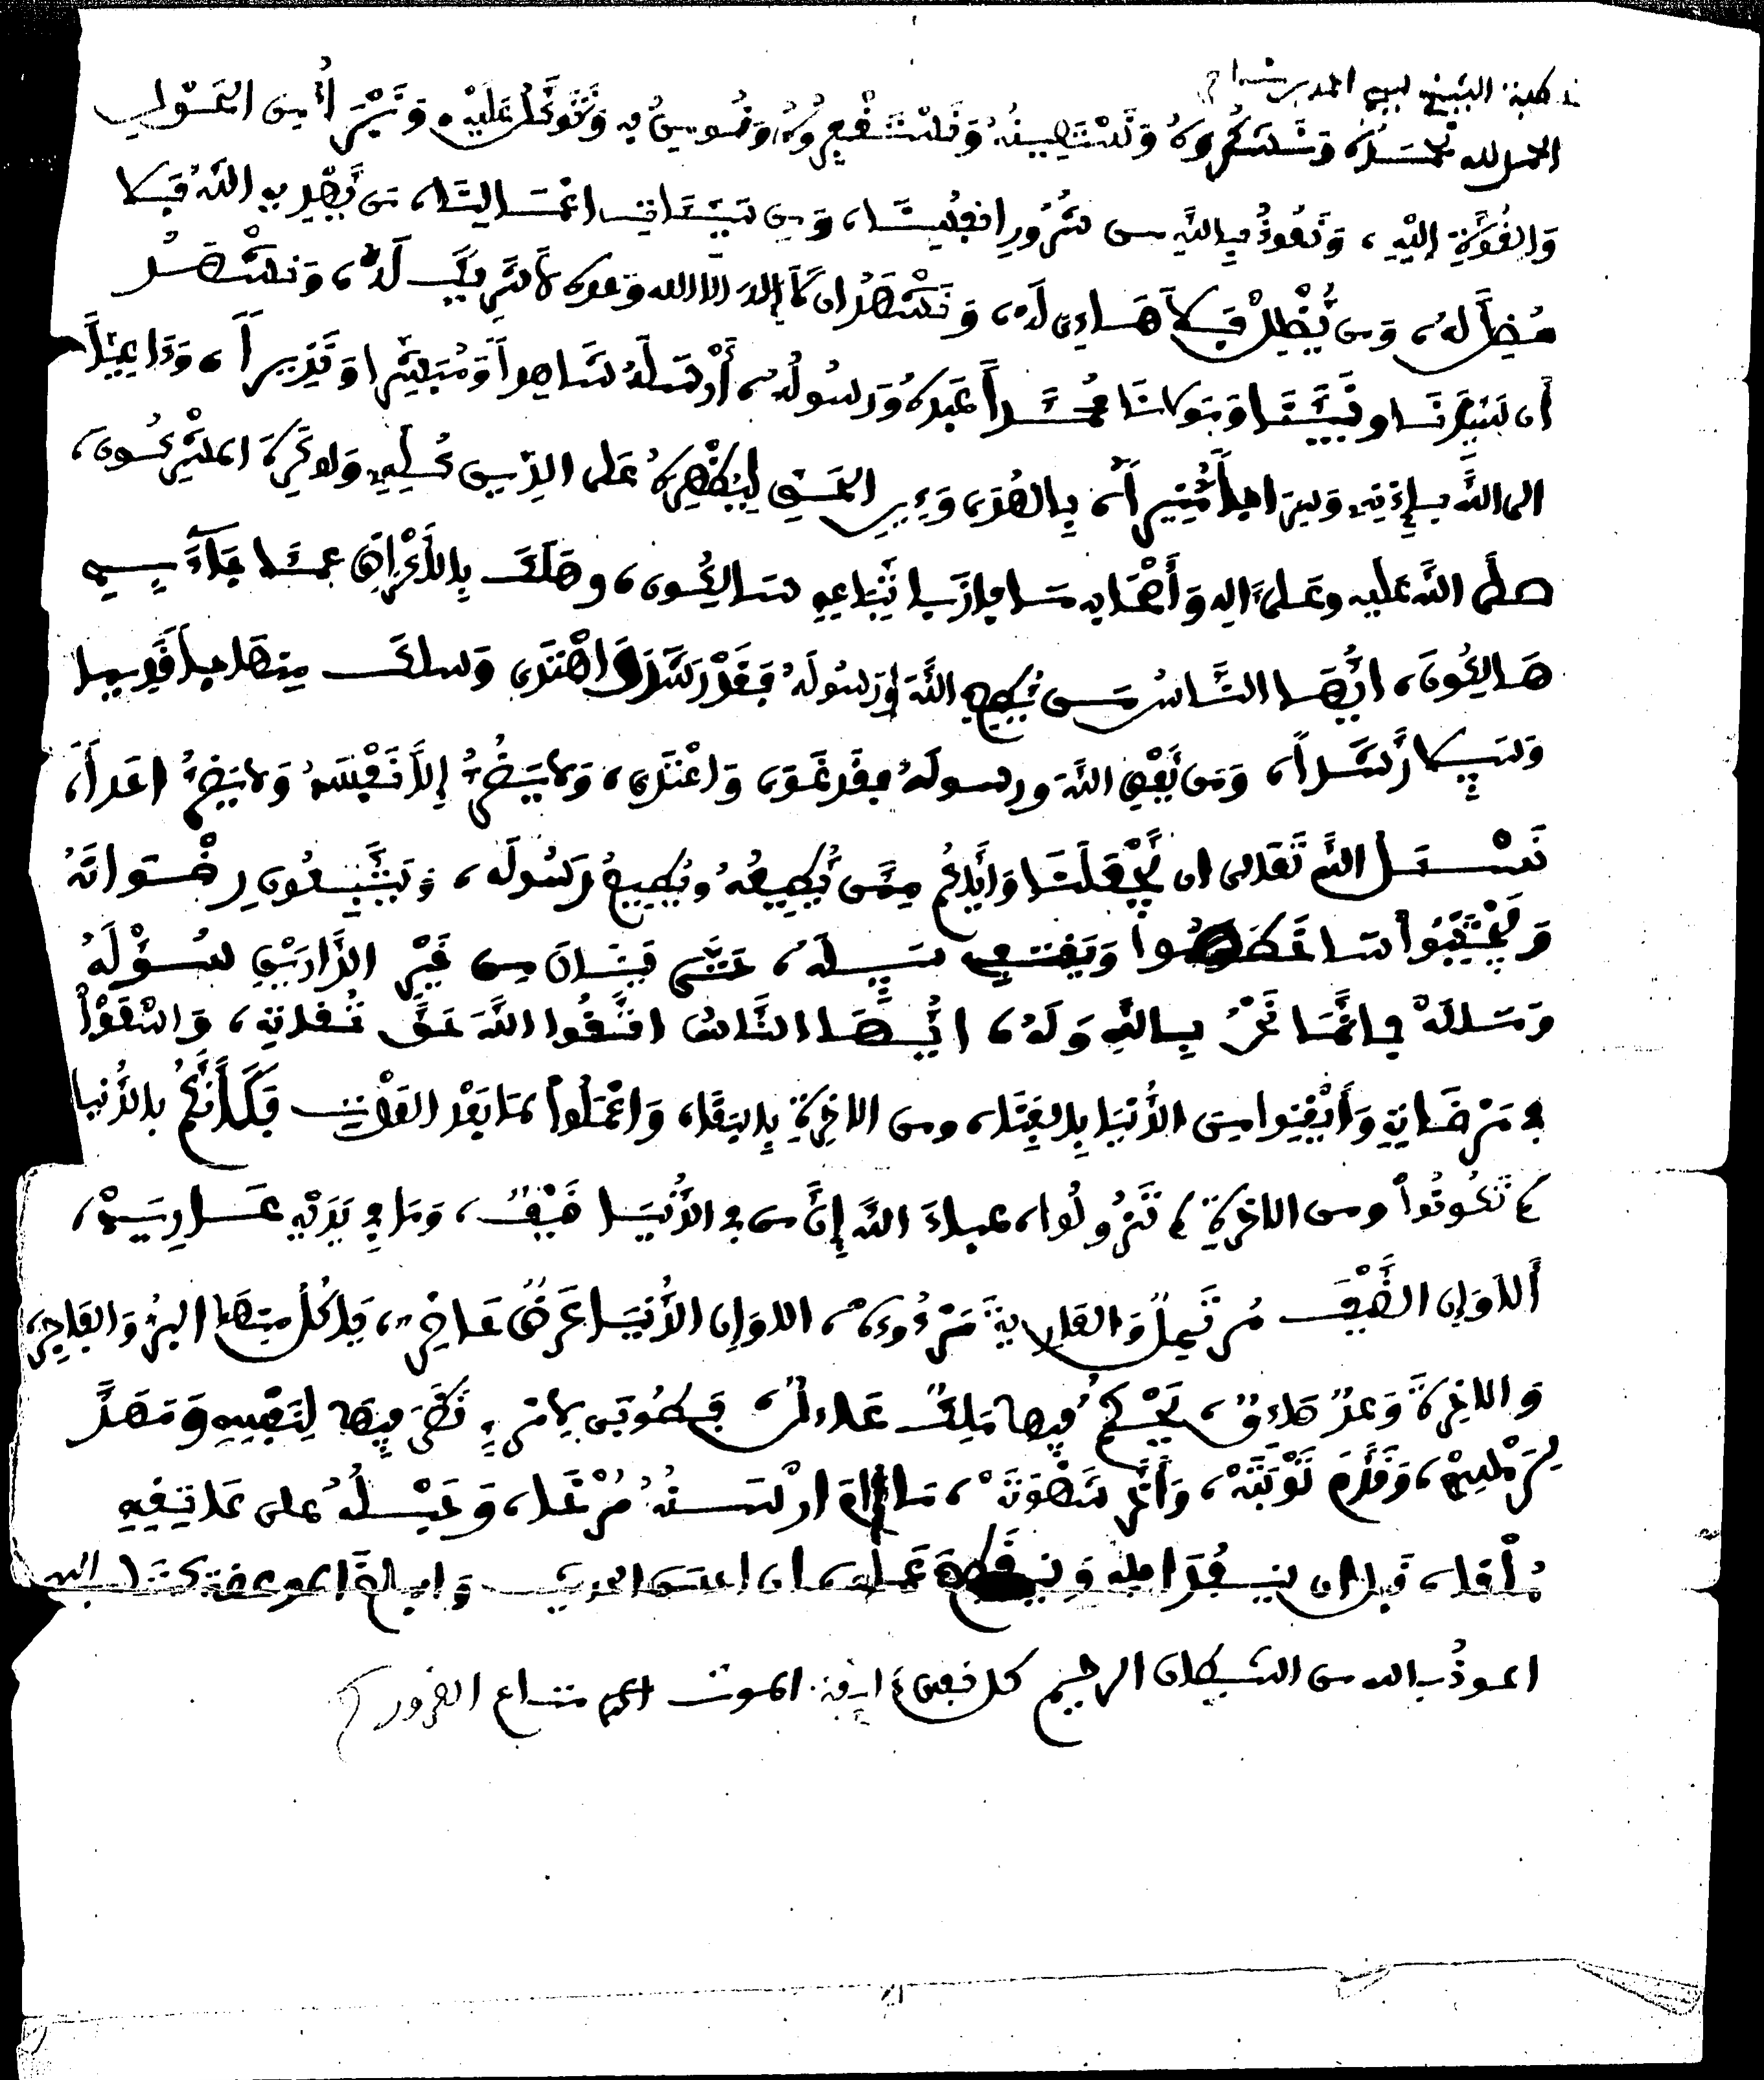 خطبة الشيخ
الحمد لله نحمده ونشكره ونستعينه ونستغفره ونومن به ونتوكل عليه ونبرأ من الحول
والقوة إليه، ونعوذ بالله من شرور انفسنا، ومن سيئات اعمالنا، من يهد به الله فلا
مضل له، ومن يظلل فلا هادي له، ونشهد ان لا إله الا الله وحده لا شريك له، ونشهد
أن سيدنا ونبينا ومولانا محمدا عبده ورسوله، أرسله شاهدا ومبشرا ونذيرا، وداعيا
الى الله بإذنه وسراجا منيرا، بالهدى ودين الحق ليظهره على الدين كله ولو كره المشركون،
صلى الله عليه وعلى اله وأصحابه ما فاز باتباعه سالكون، وهلك بالأعراض عما جاء به
هالكون، ايها الناس من يطع الله ورسوله فقد رشد واهتدى وسلك منهاجا قويما
وسبيلا رشدا، ومن يعص الله ورسوله فقد غوى واعتدى، ولا يضر إلا نفسه ولا يضر احدا،
نسئل الله تعالى ان يجعلنا وإياكم ممن يطيعه ويطيع رسوله، ويتبعون رضوانه
ويجتنبوا سخطه ويقتفي سبيله، حتى ينال من خير الدارين سؤله
وسلله فانما نحن بالله وله، ايها الناس اتقوا الله حق تقاته، واسعوا
في مرضاته وأيقنوا من الدنيا بالفنا، ومن الاخرة بالبقا، واعملوا لما بعد الموت فكأنكم بالدنيا
لم تكونوا ومن الاخرة لم تزولوا، عباد الله إن من في الدنيا ضيف، وما في يديه عارية،
ألا وإن الضيف مرتحل والعارية مردودة، الا وإن الدنيا عرض حاضر، ياكل منها البر والفاجر،
والاخرة وعد صادق، يحكم فيها ملك عادل، فطوبى لامرئ نظر فيها لنفسه ومهد
لرمسه، وقدم توبته، وأخر شهوته، ما دام رسنه مرخا، وحبله على عاتقه
ملقا، قبل ان ينفد اجله وينقطع عمله، ان احسن الحديث وابلغ الموعظة كتاب الله
اعوذ بالله من الشيطان الرجيم كل نفس ذايقة الموت الى متاع الغرور